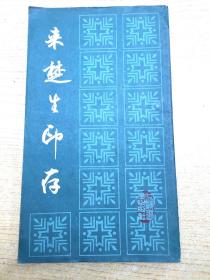 来楚生印存